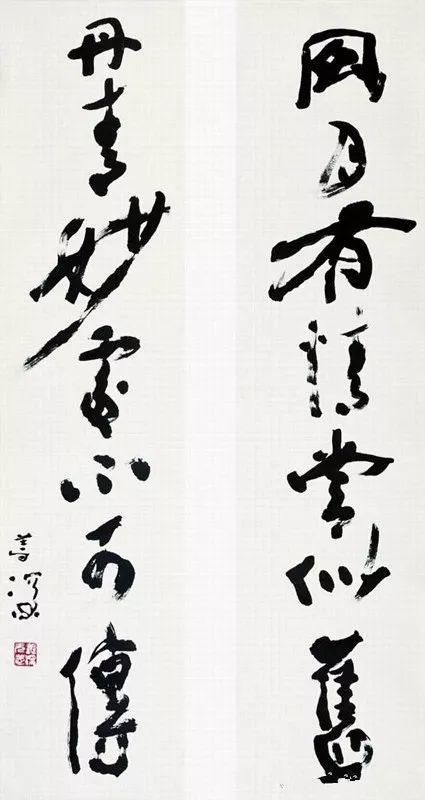 風月有情常似舊
丹青妙處不可傳